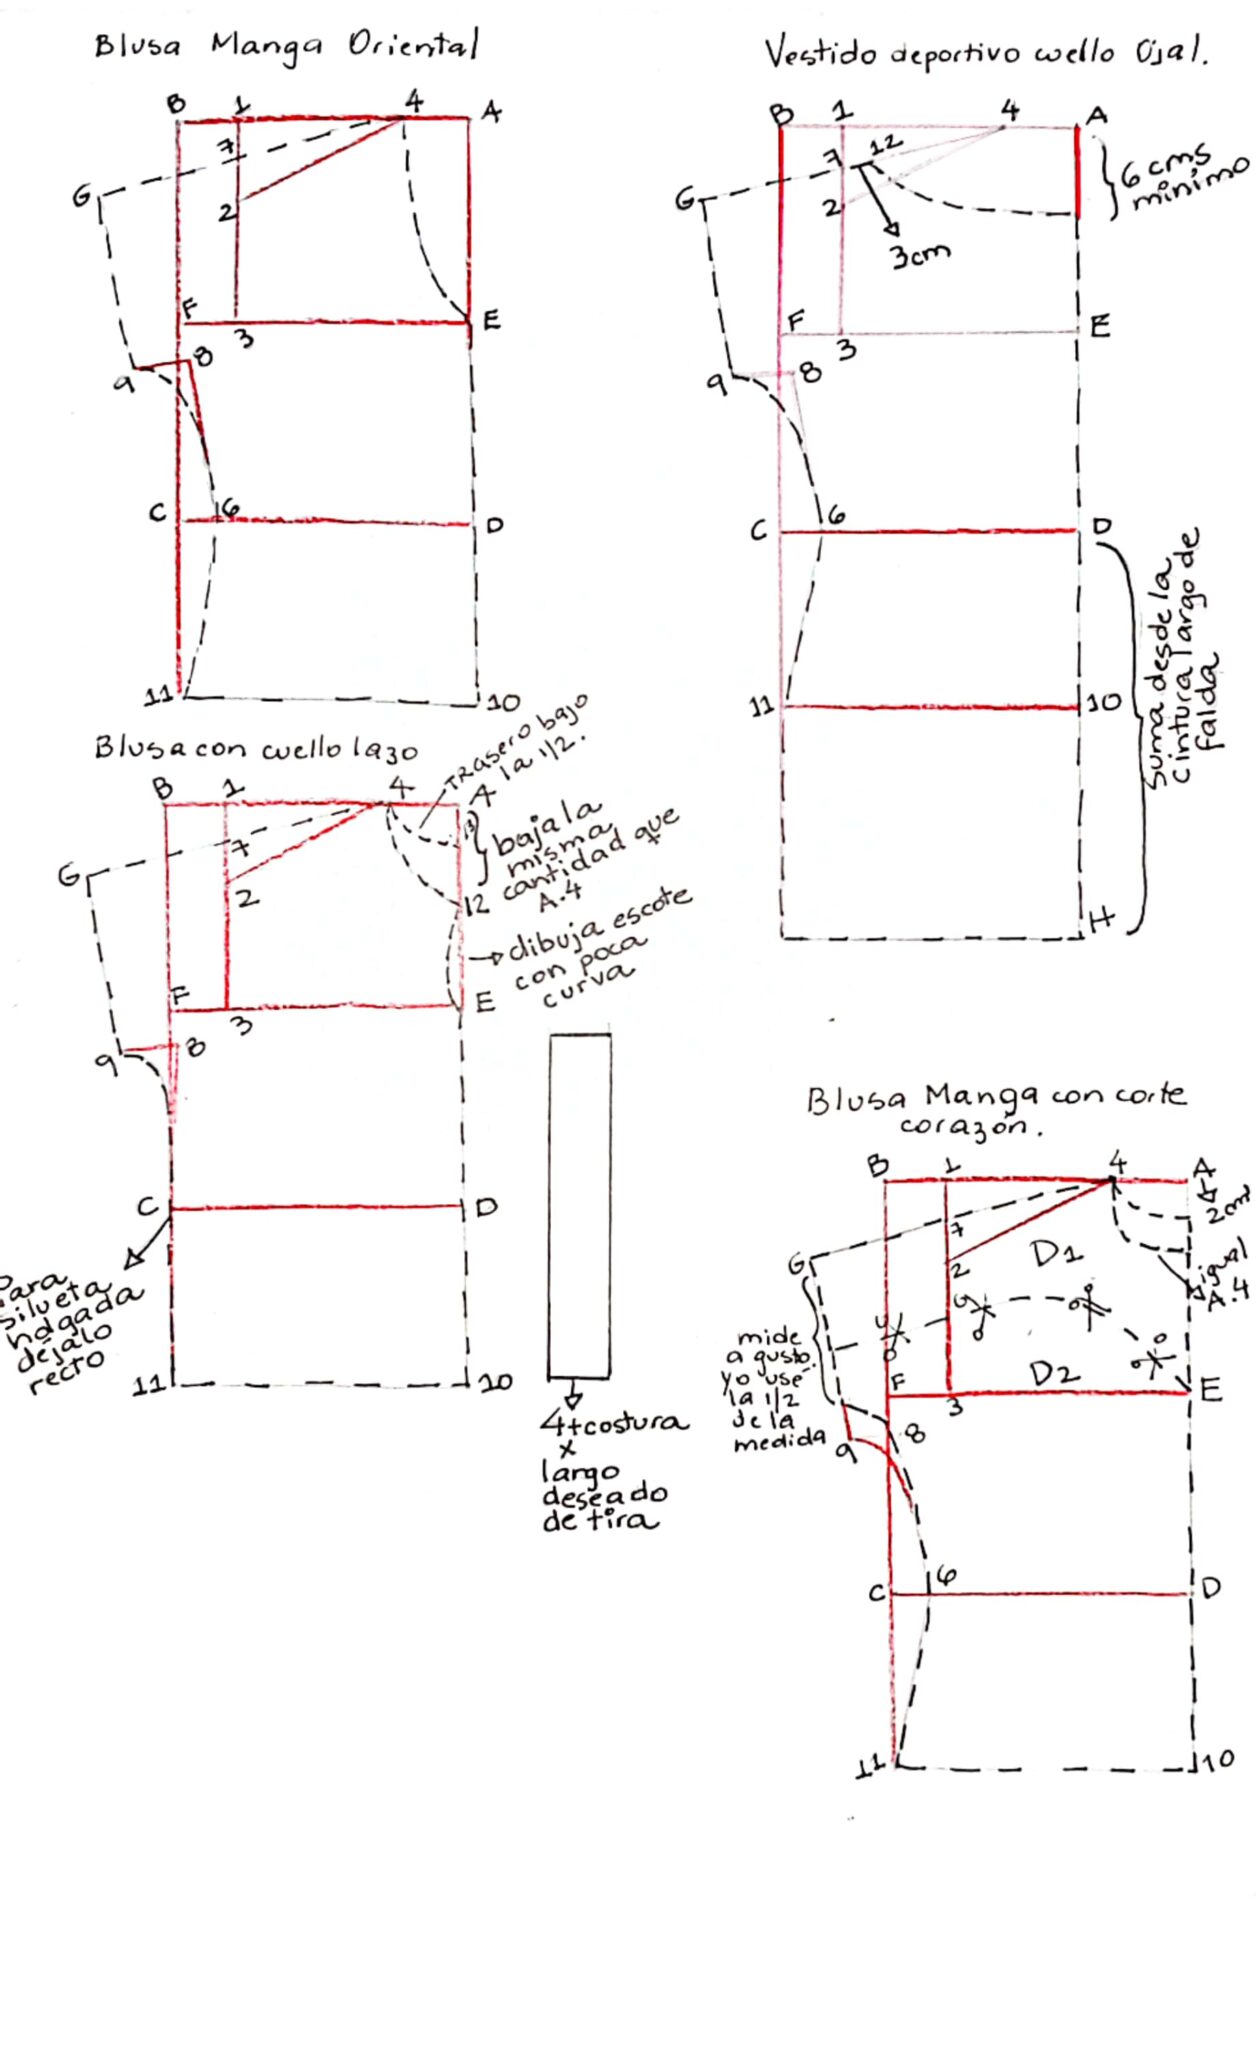 Blusa Manga Oriental
B 1 4 A
7
G
2
F
3 E
8
9
C 6 D
11 10
Vestido deportivo cuello Ojal.
B 1 4 A
7 12
6 cms
mínimo
G
2
3cm
F E
3
9 8
C 6 D
Suma desde la
cintura largo de
falda
11 10
H
Blusa con cuello lazo
TRASERO bajo
la 1/2.
B 1 4 A
13
7
G
2
baja la
misma
cantidad que
A.4
12
dibuja escote
con poca
curva
F E
3
9 8
C D
Para
silueta
holgada
déjalo
recto
11 10
4+costura
x
largo
deseado
de tira
Blusa Manga con corte
corazón.
B 1 4 A
2cm
7
G
2
D1
igual
A.4
mide
a gusto.
yo use
la 1/2
de la
medida
F D2 E
3
8
9
C 6 D
11 10